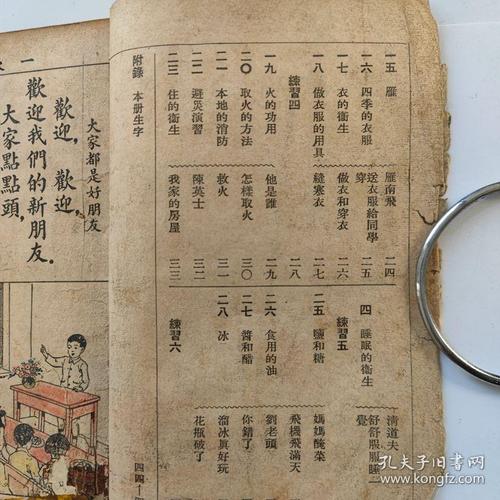 一五 雁 雁南飛 二四
一六 四季的衣服 送衣服給同學穿 二五
一七 衣的衞生 做衣和穿衣 二六
一八 做衣服的用具 縫寒衣 二七
練習四 二八
一九 火的功用 他是誰 二九
二〇 取火的方法 怎樣取火 三〇
二一 本地的消防 救火 三一
二二 避災演習 陳英士 三二
二三 住的衞生 我家的房屋 三三
附錄 本册生字
清道夫
四 睡眠的衞生 舒舒服服睡一覺
練習五
二五 鹽和糖 媽媽醃菜
飛機飛滿天
二六 食用的油 劉老頭
二七 醬和醋 你錯了
二八 冰 溜冰真好玩
練習六 花瓶破了
四四
一
大家都是好朋友
歡迎,歡迎,
歡迎我們的新朋友.
大家點點頭,
孔夫子旧书网
kongfz.com